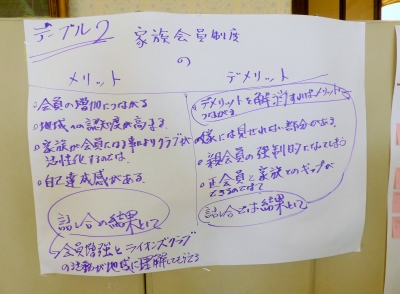 テーブル2
家族会員制度
の
メリット
○会員の増加につながる
○地域への認知度が高まる
○家族が会員になる事によりクラブが
活性化するのでは、
○自己達成感がある.
話し合の結果として
→会員増強とライオンズクラブ
の活動が地域に理解してもらえる
デメリット
○デメリットを解消すればメリットに
つながる
様には見せれない部分がある.
○親会員の強制的になってしまう
○正会員と家族とのギャップが
できるのではで
話し合では結果として